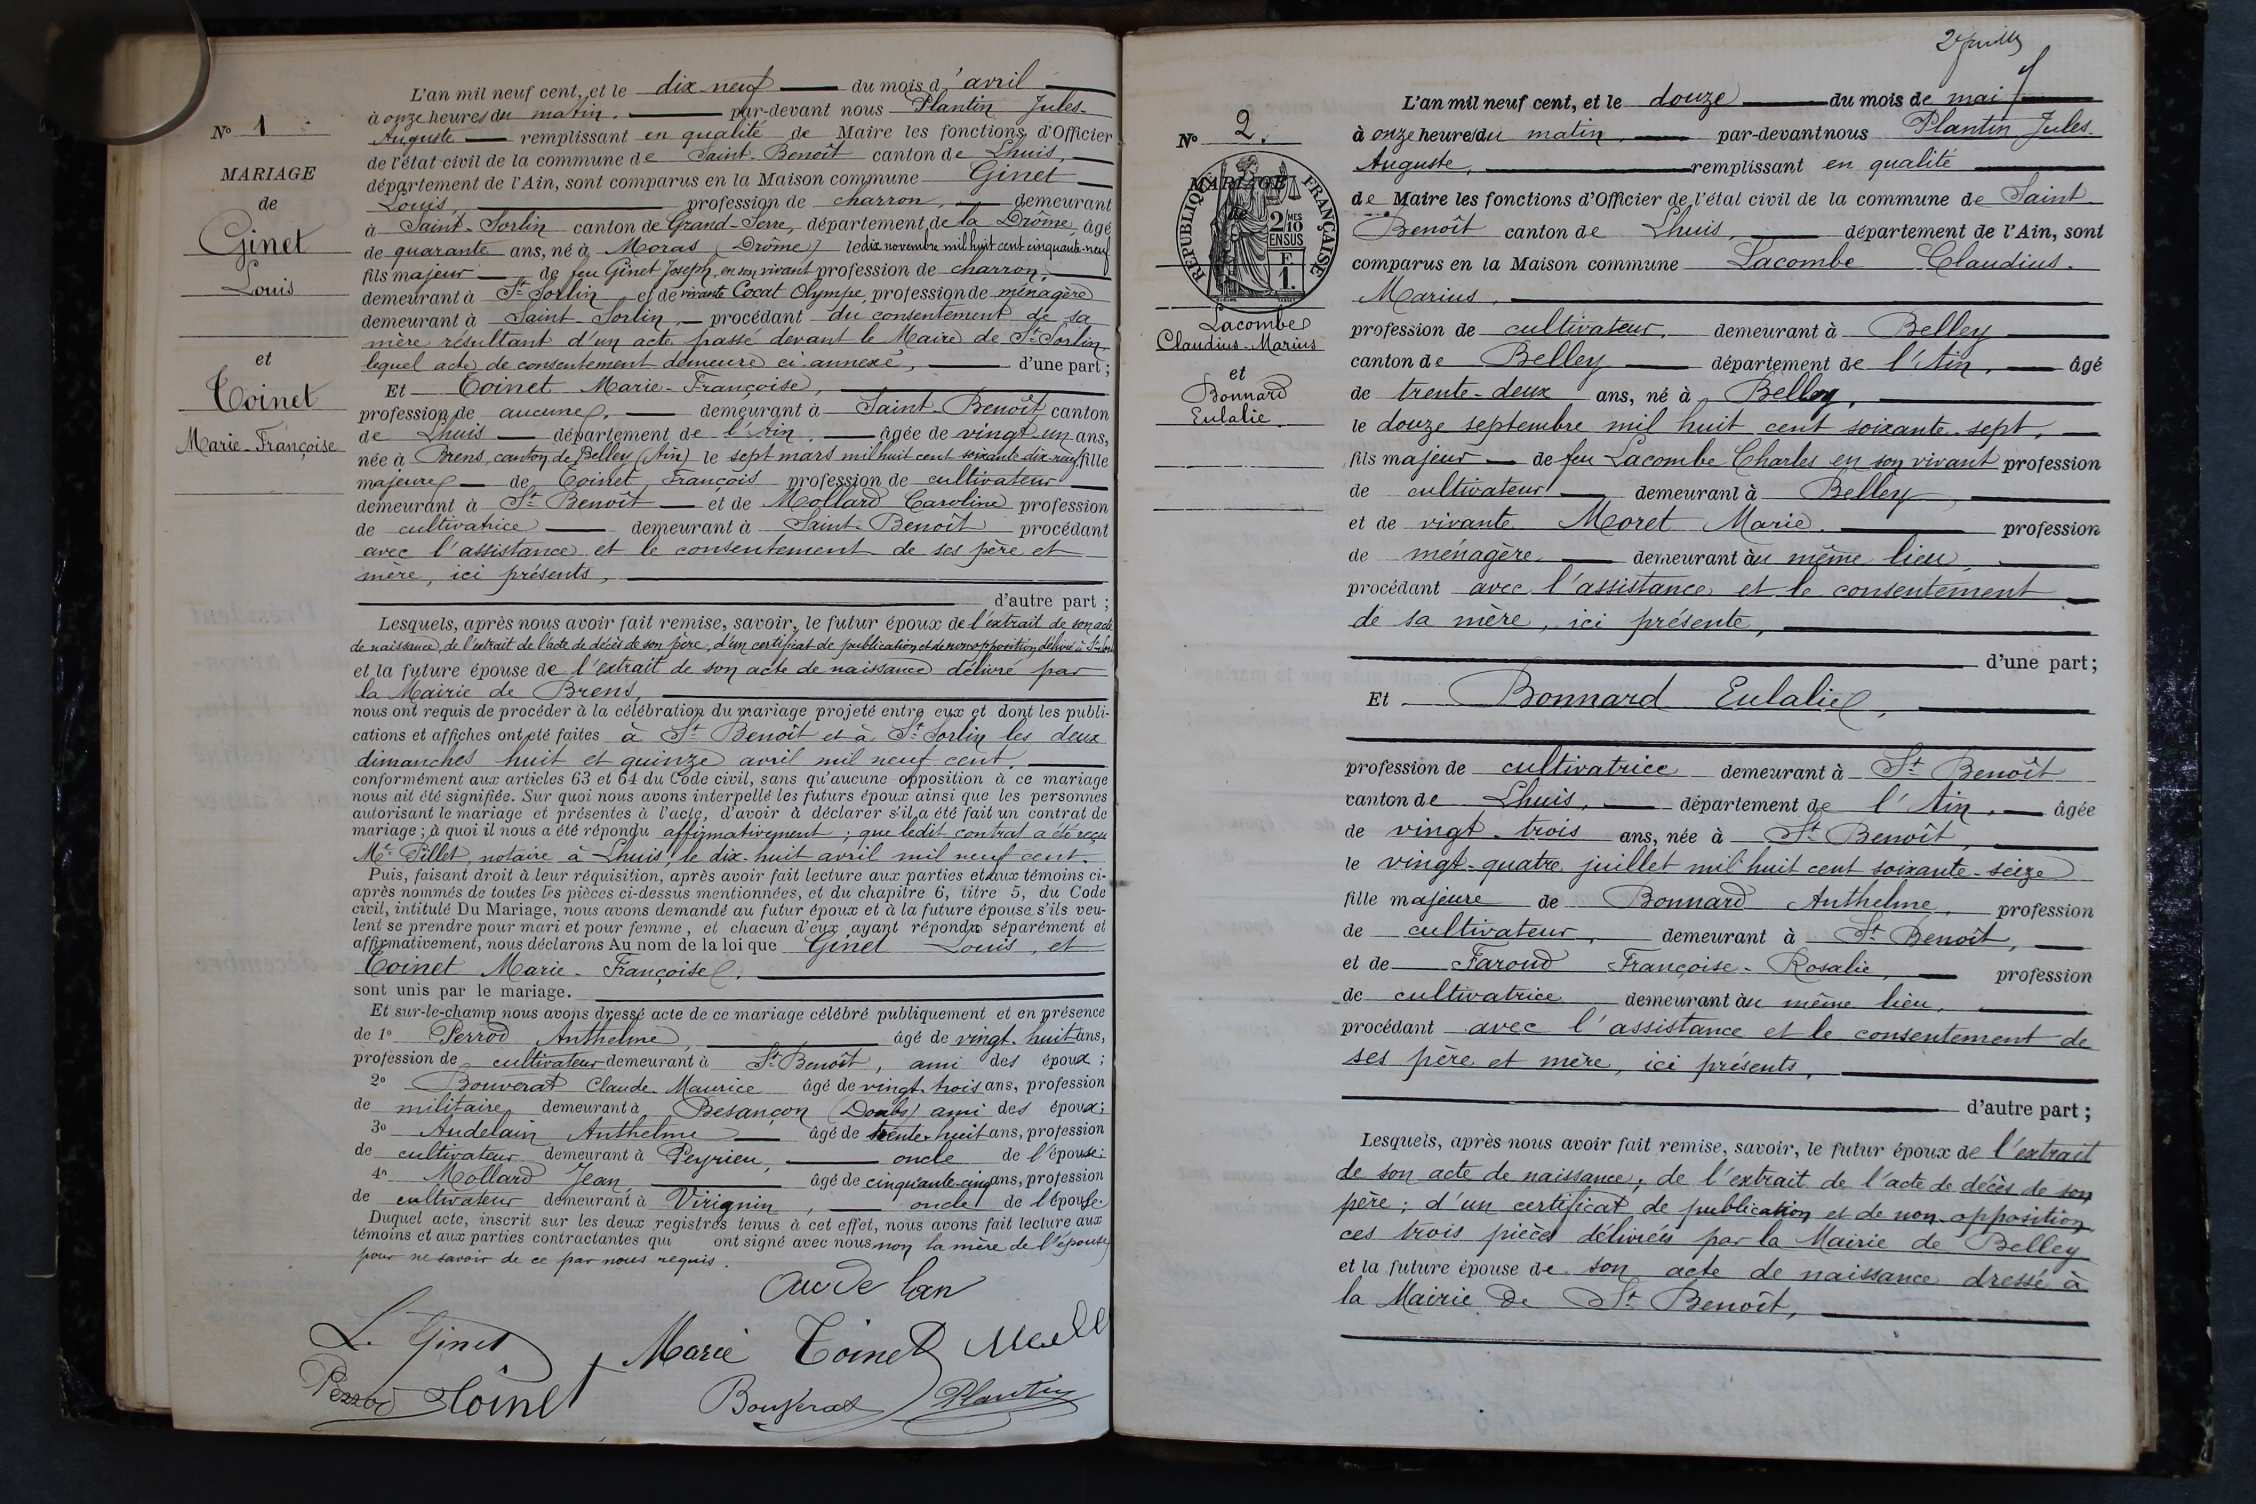 N° 1
MARIAGE
de
Ginet
Louis
et
Coinet
Marie-Françoise
L'an mil neuf cent, et le dix-neuf du mois d'avril
à onze heures du matin, par-devant nous Plantin Jules-
Auguste remplissant en qualité de Maire les fonctions d'Officier
de l'état civil de la commune de Saint-Benoît canton de Lhuis,
département de l'Ain, sont comparus en la Maison commune Ginet
Louis, profession de charron, demeurant
à Saint-Sorlin canton de Grand-Serre, département de la Drôme, âgé
de quarante ans, né à Moras (Drôme) le dix novembre mil huit cent cinquante-neuf
fils majeur de feu Ginet Joseph, en son vivant profession de charron,
demeurant à St Sorlin et de vivante Cocat Olympe, profession de ménagère
demeurant à Saint-Sorlin, procédant du consentement de sa
mère résultant d'un acte passé devant le Maire de St Sorlin
lequel acte de consentement demeure ci-annexé, d'une part;
Et Coinet Marie-Françoise,
profession de aucune, demeurant à Saint-Benoît, canton
de Lhuis département de l'Ain, âgée de vingt-un ans,
née à Brens, canton de Belley (Ain) le sept mars mil huit cent soixante-dix-neuf, fille
majeure de Coinet François profession de cultivateur
demeurant à St Benoît et de Mollard Caroline profession
de cultivatrice demeurant à Saint-Benoît procédant
avec l'assistance et le consentement de ses père et
mère, ici présents,
d'autre part;
Lesquels, après nous avoir fait remise, savoir, le futur époux de l'extrait de son acte
de naissance, de l'extrait de l'acte de décès de son père, d'un certificat de publication et de non opposition délivré à
et la future épouse de l'extrait de son acte de naissance délivré par
la Mairie de Brens,
nous ont requis de procéder à la célébration du mariage projeté entre eux et dont les publi-
cations et affiches ont été faites à St Benoît et à St Sorlin les deux
dimanches huit et quinze avril mil neuf cent,
conformément aux articles 63 et 64 du Code civil, sans qu'aucune opposition à ce mariage
nous ait été signifiée. Sur quoi nous avons interpellé les futurs époux ainsi que les personnes
autorisant le mariage et présentes à l'acte, d'avoir à déclarer s'il a été fait un contrat de
mariage; à quoi il nous a été répondu affirmativement; que ledit contrat a été reçu
Me Pillet, notaire à Lhuis, le dix-huit avril mil neuf cent.
Puis, faisant droit à leur réquisition, après avoir fait lecture aux parties et aux témoins ci-
après nommés de toutes les pièces ci-dessus mentionnées, et du chapitre 6, titre 5, du Code
civil, intitulé Du Mariage, nous avons demandé au futur époux et à la future épouse s'ils veu-
lent se prendre pour mari et pour femme, et chacun d'eux ayant répondu séparément et
affirmativement, nous déclarons Au nom de la loi que Ginet Louis, et
Coinet Marie-Françoise,
sont unis par le mariage.
Et sur-le-champ nous avons dressé acte de ce mariage célébré publiquement et en présence
de 1° Perrod Anthelme, âgé de vingt-huit ans,
profession de cultivateur demeurant à St Benoît, ami des époux;
2° Bouverat Claude-Maurice âgé de vingt-trois ans, profession
de militaire, demeurant à Besançon (Doubs) ami des époux;
3° Audelain Anthelme âgé de trente-huit ans, profession
de cultivateur demeurant à Peyrieu, oncle de l'épouse;
4° Mollard Jean, âgé de cinquante-cinq ans, profession
de cultivateur demeurant à Virignin, oncle de l'épouse
Duquel acte, inscrit sur les deux registres tenus à cet effet, nous avons fait lecture aux
témoins et aux parties contractantes qui ont signé avec nous, non la mère de l'épouse
pour ne savoir de ce par nous requis.
L. Ginet
Marie Coinet
Perrod
Coinet
Bouverat
Plantin
N° 2.
MARIAGE
de
RÉPUBLIQUE FRANÇAISE
2/10 MES
EN SUS
F
1.
Lacombe
Claudius-Marius
et
Bonnard
Eulalie
L'an mil neuf cent, et le douze du mois de mai
à onze heures du matin, par-devant nous Plantin Jules-
Auguste, remplissant en qualité
de Maire les fonctions d'Officier de l'état civil de la commune de Saint-
Benoît canton de Lhuis, département de l'Ain, sont
comparus en la Maison commune Lacombe Claudius-
Marius,
profession de cultivateur, demeurant à Belley
canton de Belley département de l'Ain, âgé
de trente-deux ans, né à Belley,
le douze septembre mil huit cent soixante-sept,
fils majeur de feu Lacombe Charles en son vivant profession
de cultivateur demeurant à Belley
et de vivante Moret Marie profession
de ménagère demeurant au même lieu,
procédant avec l'assistance et le consentement
de sa mère, ici présente,
d'une part;
Et Bonnard Eulalie,
profession de cultivatrice demeurant à St Benoît
canton de Lhuis, département de l'Ain, âgée
de vingt-trois ans, née à St Benoît,
le vingt-quatre juillet mil huit cent soixante-seize
fille majeure de Bonnard Anthelme, profession
de cultivateur, demeurant à St Benoît,
et de Faroud Françoise-Rosalie, profession
de cultivatrice demeurant au même lieu,
procédant avec l'assistance et le consentement de
ses père et mère, ici présents,
d'autre part;
Lesquels, après nous avoir fait remise, savoir, le futur époux de l'extrait
de son acte de naissance; de l'extrait de l'acte de décès de son
père; d'un certificat de publication et de non-opposition,
ces trois pièces délivrées par la Mairie de Belley
et la future épouse de son acte de naissance dressé à
la Mairie de St Benoît,